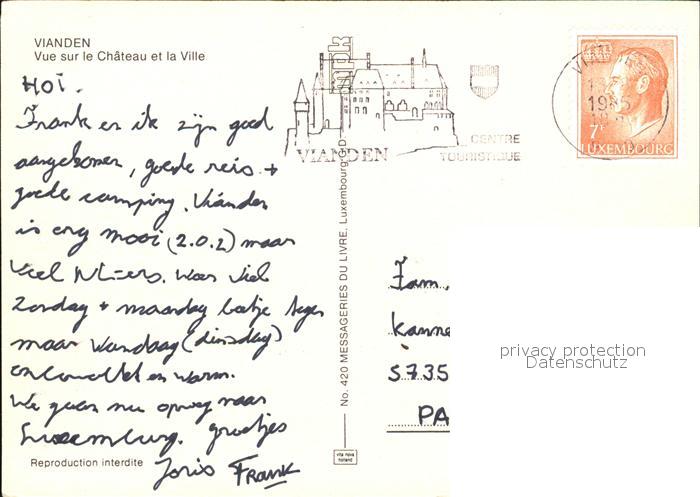 VIANDEN
Vue sur le Château et la Ville
HOI.
Frank en ik zijn goed
aangekomen, goede reis +
goede camping. Vianden
is erg mooi (z.o.z) maar
veel NL-ers. Weer viel
Zondag + maandag beetje tegen
maar Vandaag (dinsdag)
onbewolkt en warm.
We gaan nu opweg naar
Luxemburg. groetjes
Joris Frank
Reproduction interdite
No. 420 MESSAGERIES DU LIVRE, Luxembourg G.D.
vita nova
holland
VIANDEN
CENTRE
TOURISTIQUE
1985
7F
LUXEMBOURG
Fam.
Kanne
5735
PA
privacy protection
Datenschutz